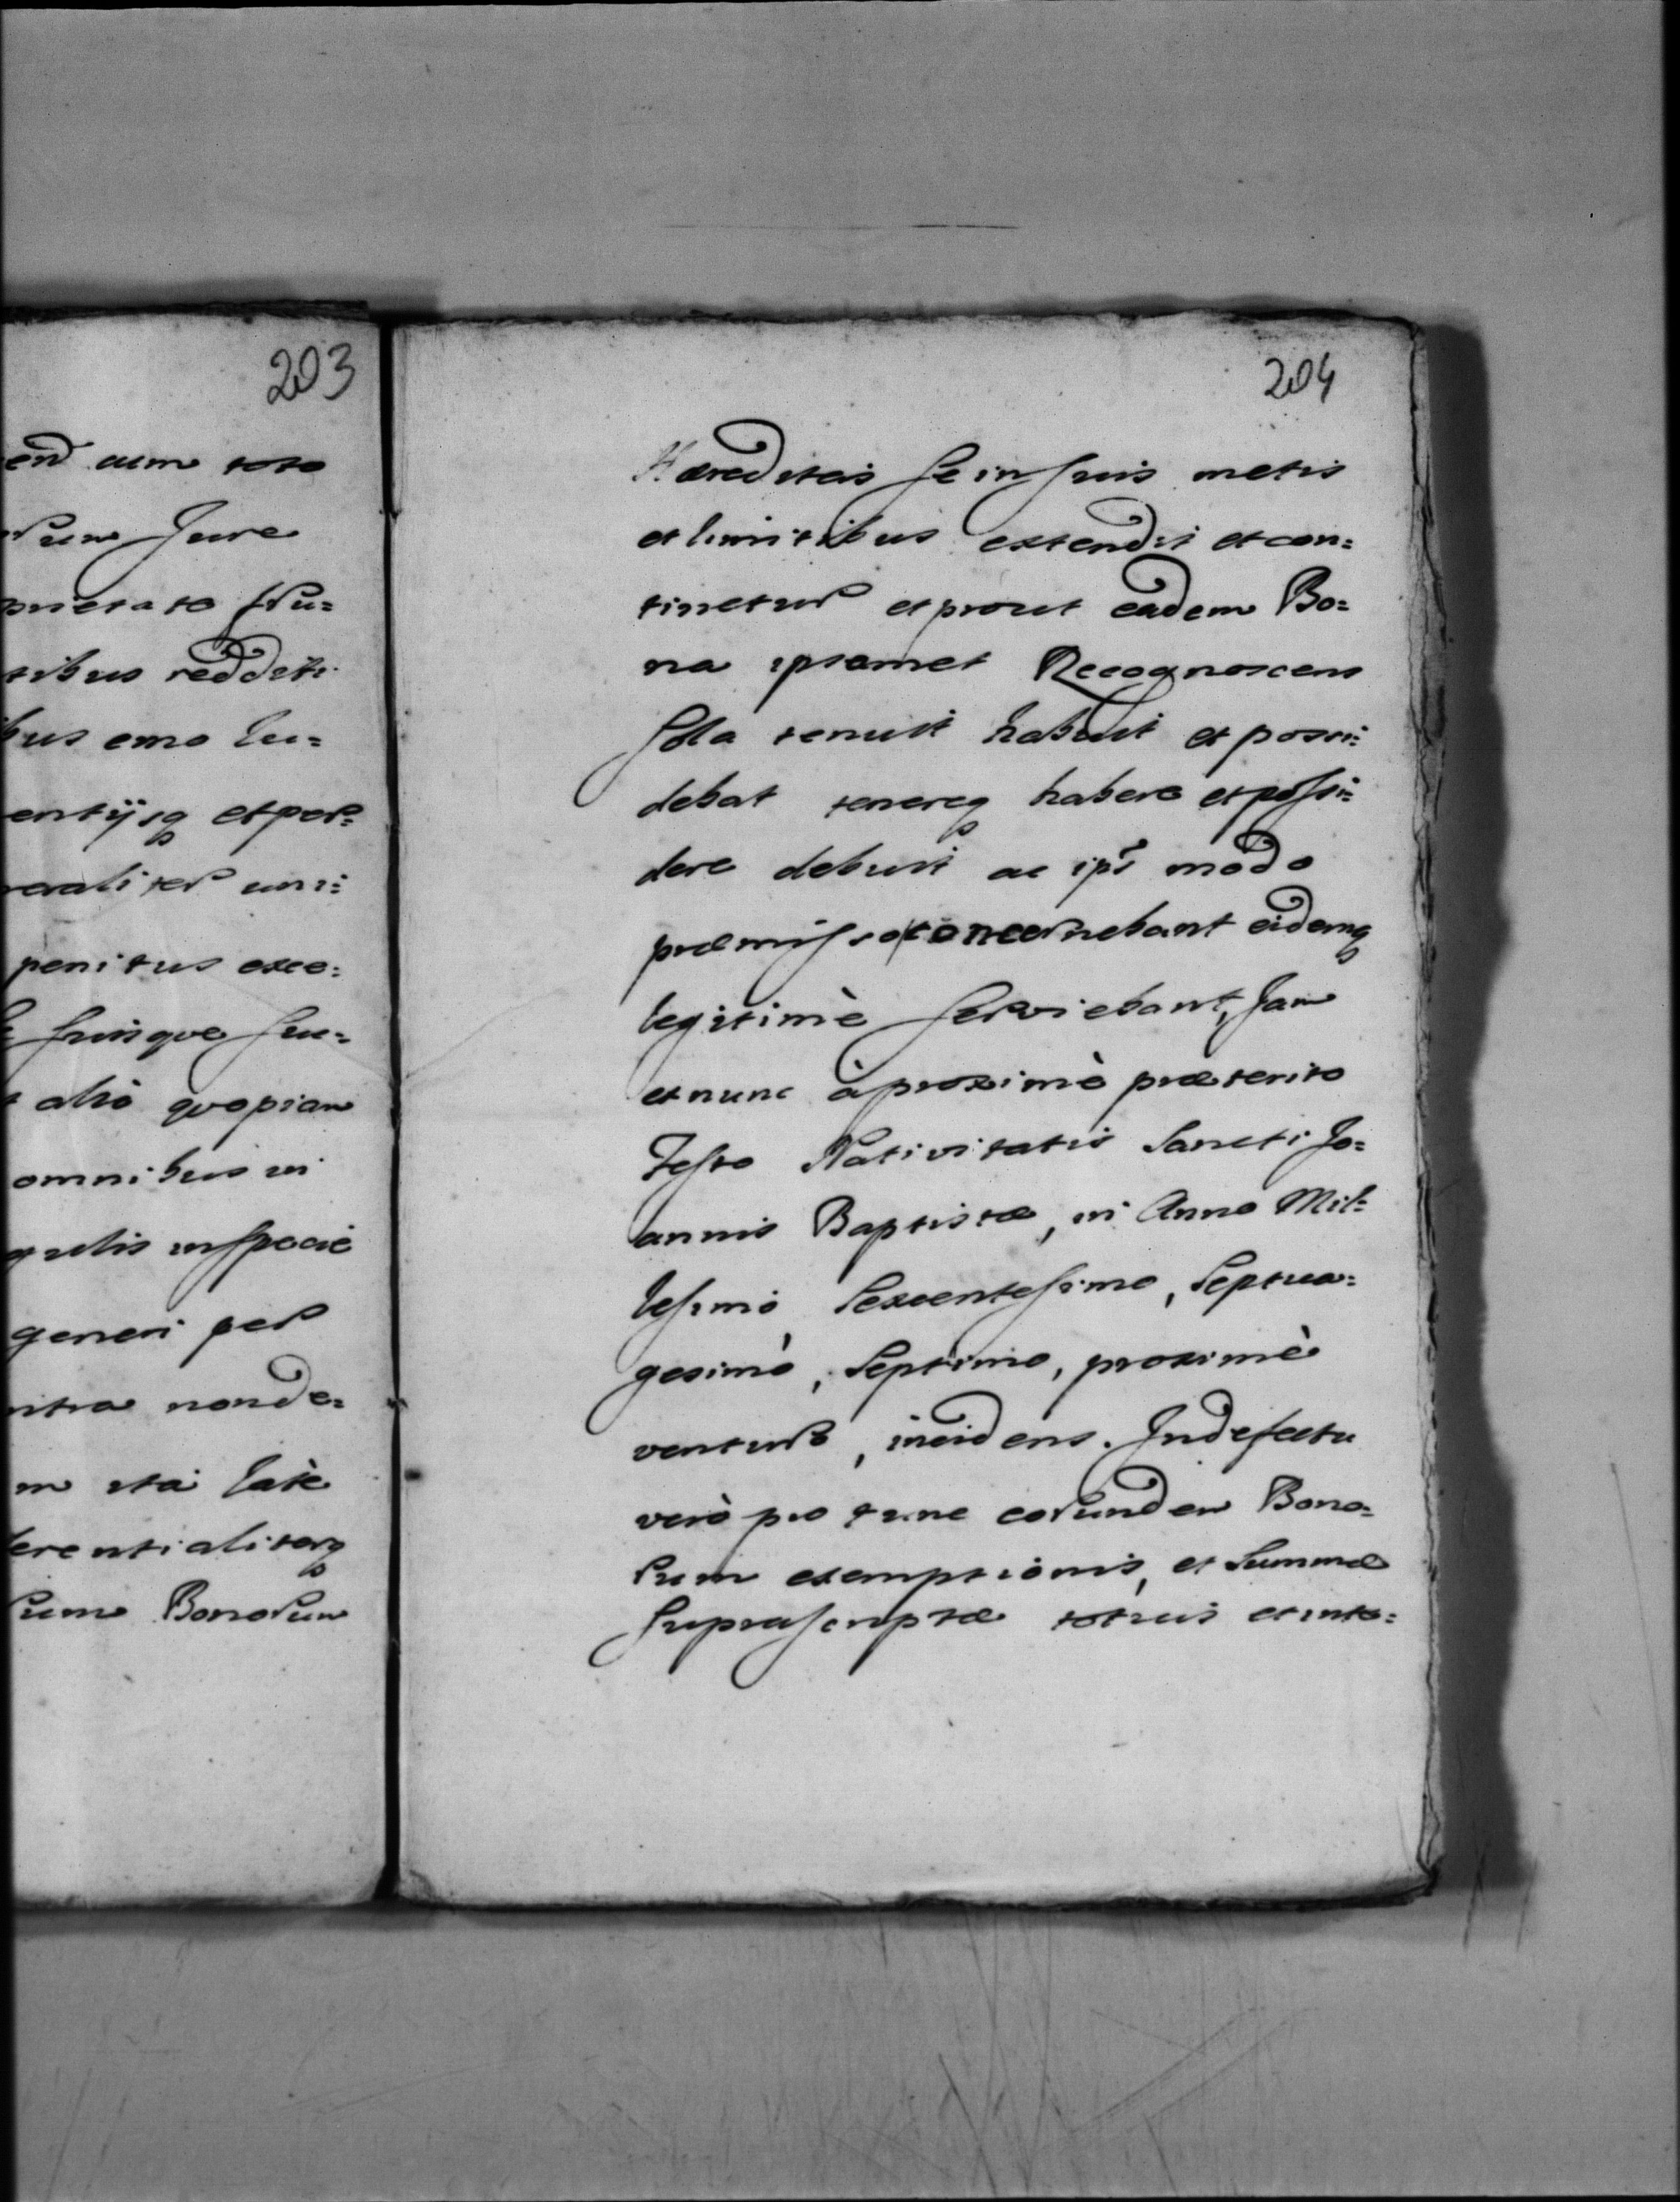 203
end cum toto
rum Jure
prietate fru=
tibus redditi
bus emo lu=
entijsq et per=
neraliter uni=
penitus exce=
suisque suc=
alio quopiam
omnibus in
gulis in specie
generi per
ntra non de=
m ita late
ferentialiterq
rum Bonorum
204
Hæreditas se in suis metis
et limitibus extendit et con=
tinetur et prout eadem Bo=
na ipsamet Recognoscens
sola tenuit habuit et possi=
debat tenereq habere et possi=
dere debuit ac ipsi modo
præmisso concernebant eidemq
legitimè serviebant, Jam
et nunc à proximè præterito
Festo Nativitatis Sancti Jo=
annis Baptistæ, in Anno Mil=
lesimo Sexcentesimo, Septua=
gesimò, Septimo, proximè
venturo, incidens. In defectu
verò pro tunc eorundem Bono=
rum exemptionis, et Summæ
suprascriptæ totius et inte=